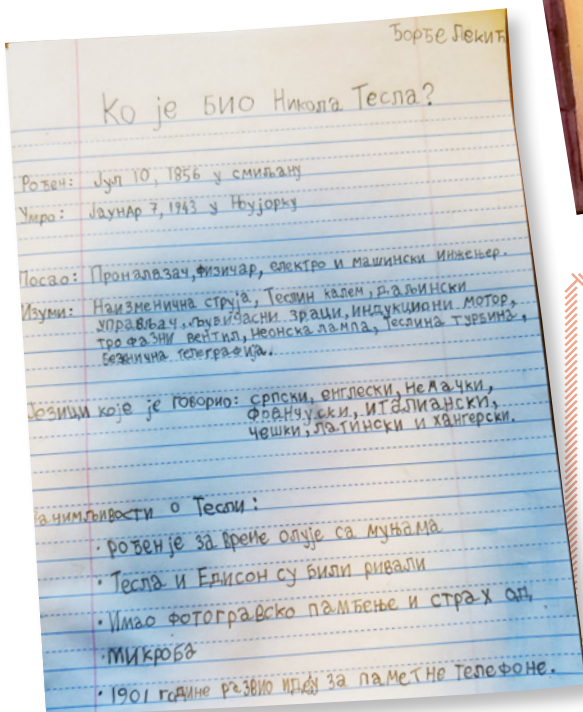 Ђорђе Лекић
Ко је био Никола Тесла?
Рођен: Јул 10, 1856 у смиљану
Умро: Јаунар 7, 1943 у Њујорку
Посао: Проналазач, физичар, електро и машински инжењер.
Изуми: Наизменична струја, Теслин калем, даљински
управљач, љувичасни зраци, индукциони мотор,
трофазни вентил, неонска лампа, Теслина турбина,
бежнична телеграфија.
Језици које је говорио: српски, енглески, немачки,
француски, италиански,
чешки, латински и хангерски.
Занимљивости о Тесли:
· рођен је за време олује са муњама
· Тесла и Едисон су били ривали
· Имао фотогравско памћење и страх од
· микроба
· 1901 године развио идеју за паметне телефоне.